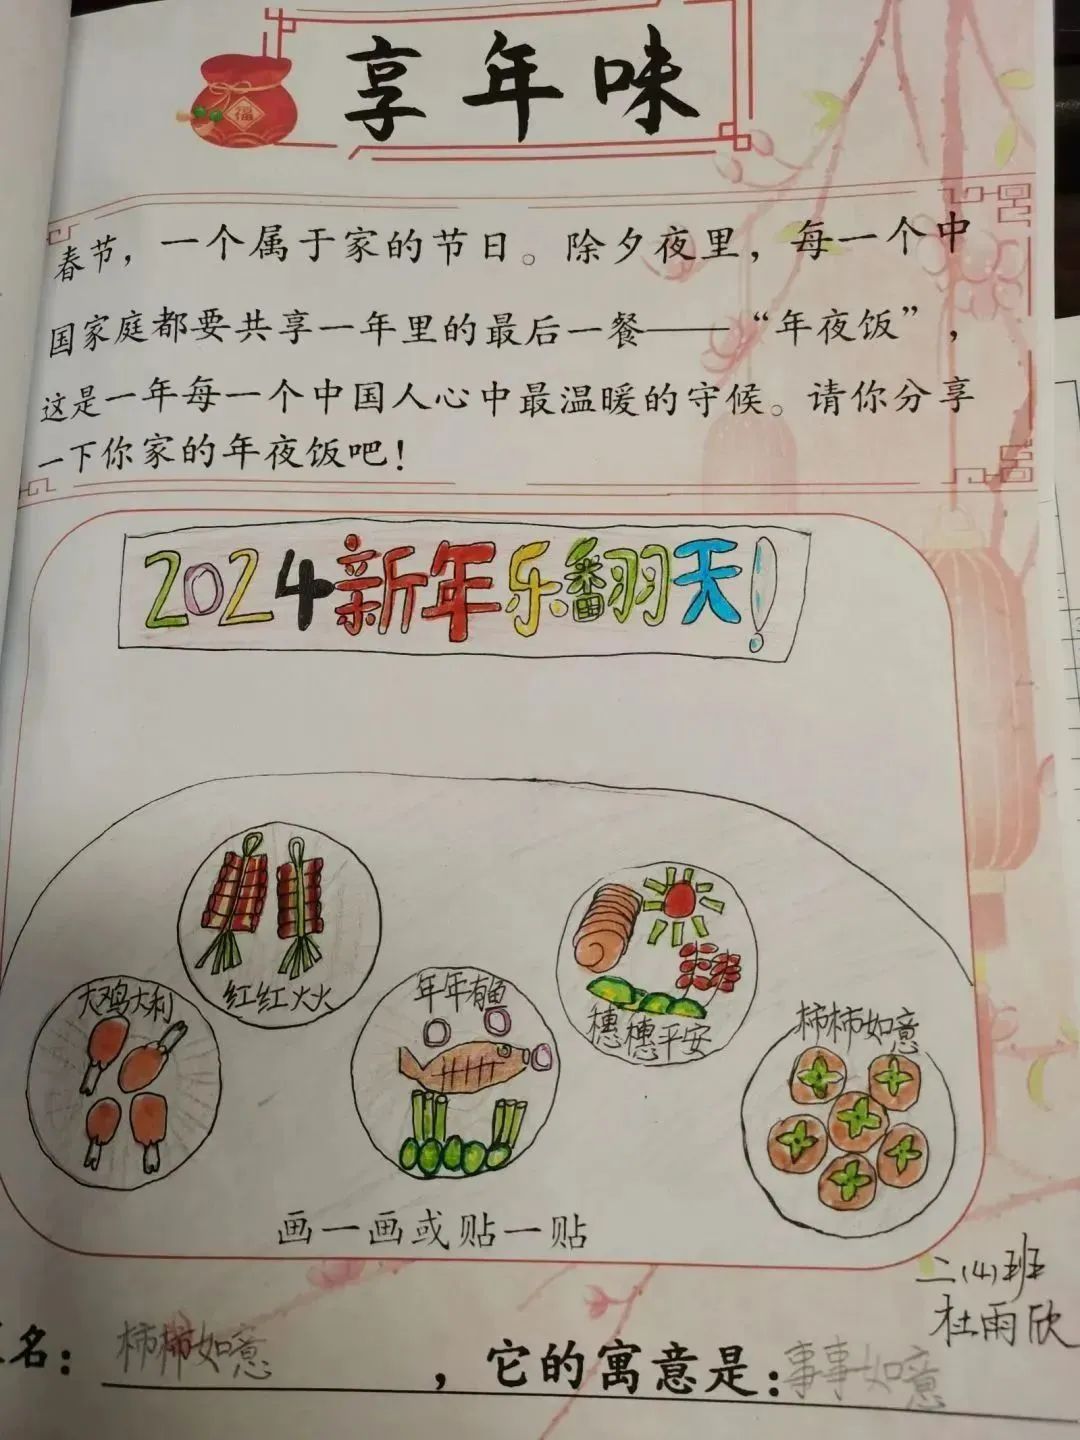 福
享年味
春节，一个属于家的节日。除夕夜里，每一个中
国家庭都要共享一年里的最后一餐——“年夜饭”，
这是一年每一个中国人心中最温暖的守候。请你分享
一下你家的年夜饭吧！
2024新年乐翻天！
大鸡大利
红红火火
年年有鱼
穗穗平安
柿柿如意
画一画或贴一贴
二(4)班
杜雨欣
名：柿柿如意，它的寓意是：事事如意